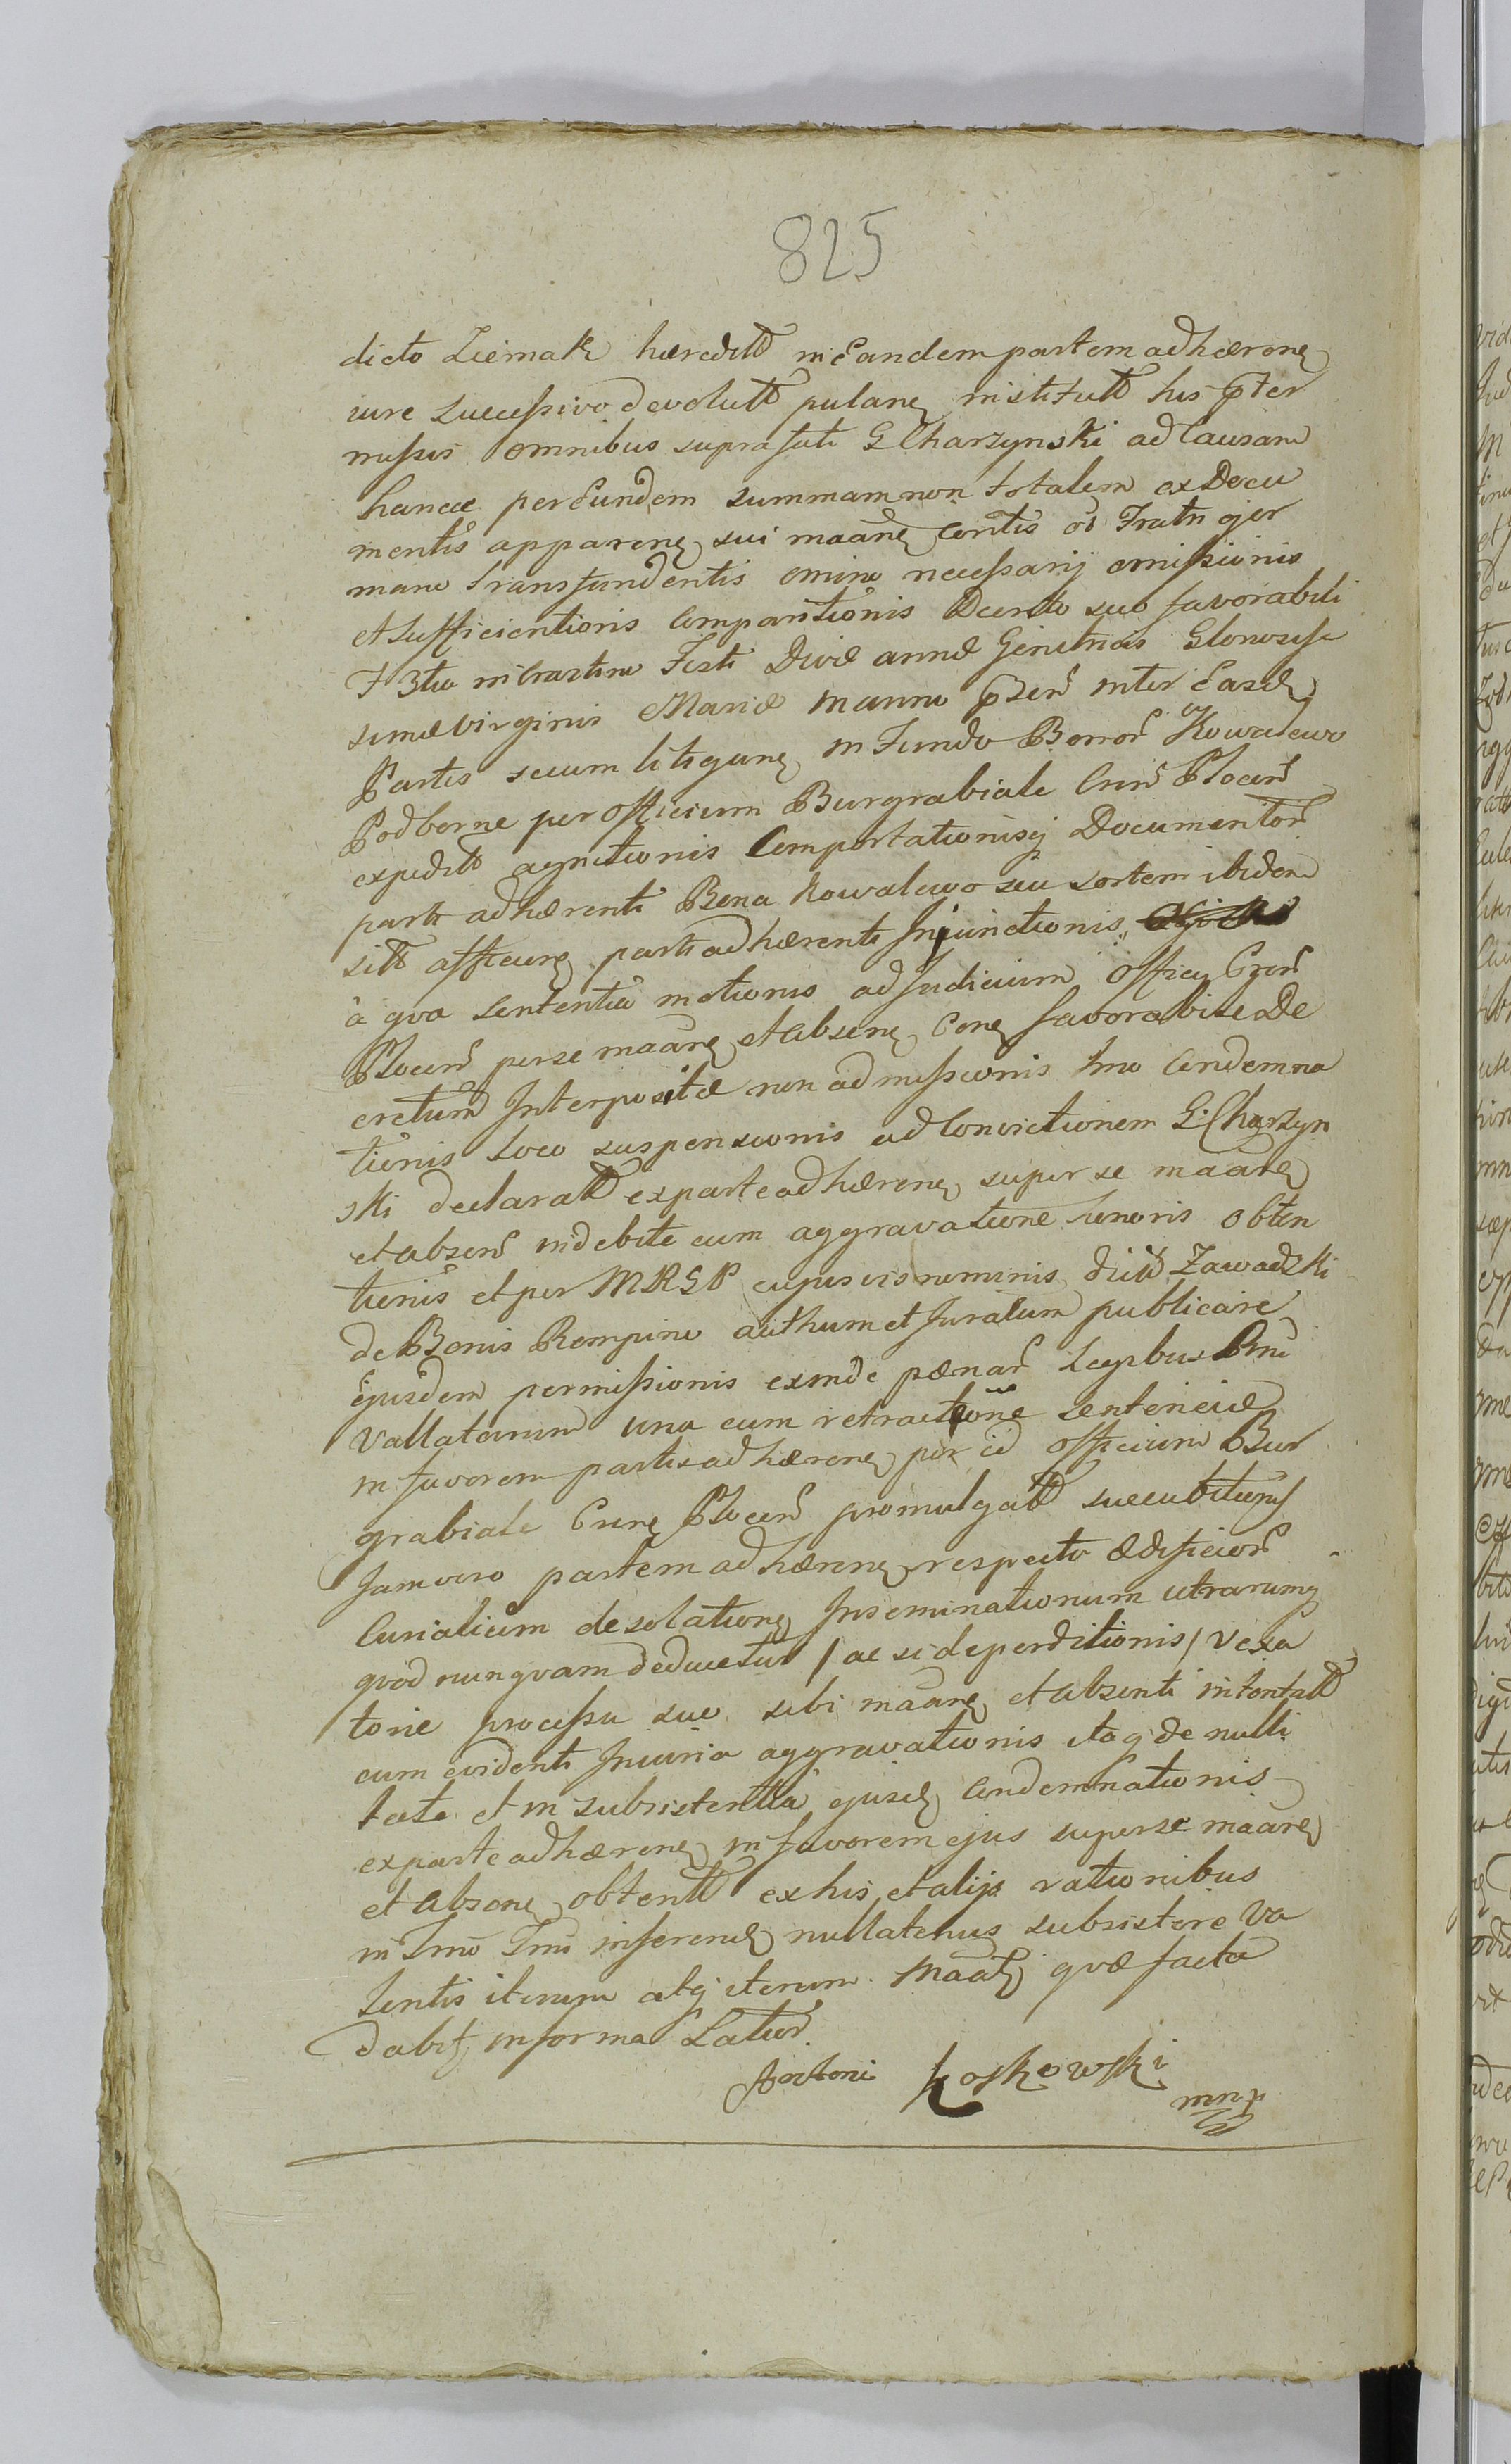 825
dicto Ziemak hæredittt in Eandem partem adhæreneꝫ
iure Successivo devolutttt putaneꝫ instituttt his præter
missis omnibus suprafati G Charzynski ad Causam
hancce per Eundem summam non totalem ex Docu
mentis appareneꝫ sui maaneꝫ
mano transfundentis omino necessarij omissionis
et sufficientioris Comparitionis Decreto suo favorabili
Fria 3tia in Crastino Festi Divæ annæ Genitricis Gloriosis
simæ virginis Mariæ in anno præsen inter Easdeꝫ
Partes secum litiganeꝫ in Fundo Bonor Kowalewo
Podborne per officium Burgrabiale Crin Plocen
expeditt agnitionis Comportationisqꝫ Documentor
parti adhærenti Bona Kowalewo seu sortem ibidem
sitt parti adhærenti Injunctionis
à qva Sententia motionis ad Judicium officij Cren
Plocen per se maaneꝫ et abseneꝫ Coneꝫ favorabile De
cretum Interpositæ non admissionis Imo Condemna
tionis loco suspensionis ad Convictionem G: Charzyn
ski declaratt ex parte adhæreneꝫ super se maaneꝫ
et absen indebite cum aggravatione honoris obten
tionis et per MRSP cujusvis nominis dictt Zawadzki
de Bonis Rempino authum et Juratum publicare
ejusdem permissionis exinde pænar legibus Rni
Vallatarum una cum retractione sentenciæ
in favorem partis adhæreneꝫ per id officium Bur
grabiale Creneꝫ Plocen promulgatt succubituris
Jam vero partem adhæreneꝫ respectu ædificior
Curialium desolationeꝫ Inseminationum utrarumqꝫ
qvod nunqvam deducetur / ac si deperditionis / vexa
torie processu suo sibi maaneꝫ et absenti intentatt
cum evidenti Iniuria aggravationis itaqꝫ de nulli
tate et in subsistentia ejusdeꝫ Condemnationis
ex parte adhæreneꝫ in favorem ejus super se maaneꝫ
et absene obtentt ex his et alijs rationibus
in Tmo Tmi inferendꝫ nullatenus subsistere va
lentis iterum atqꝫ iterum Maatꝫ qvæ facta
dabitꝫ in forma Latior
Antoni Koskowski
mnpp